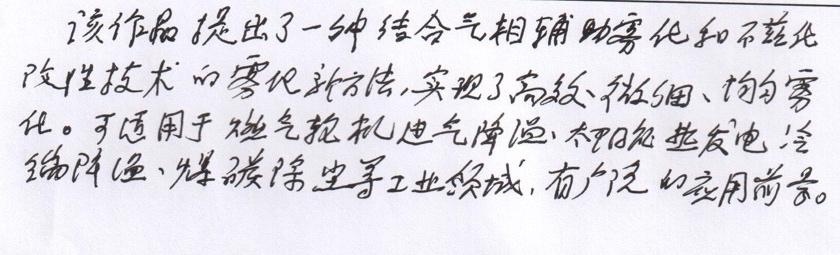 该作品提出了一种结合气相辅助雾化和不兹化
改性技术的雾化新方法,实现了高效、微细、均匀雾
化。可适用于燃气轮机进气降温、太阳能热发电冷
端降温、煤碳除尘等工业领域,有广泛的应用前景。